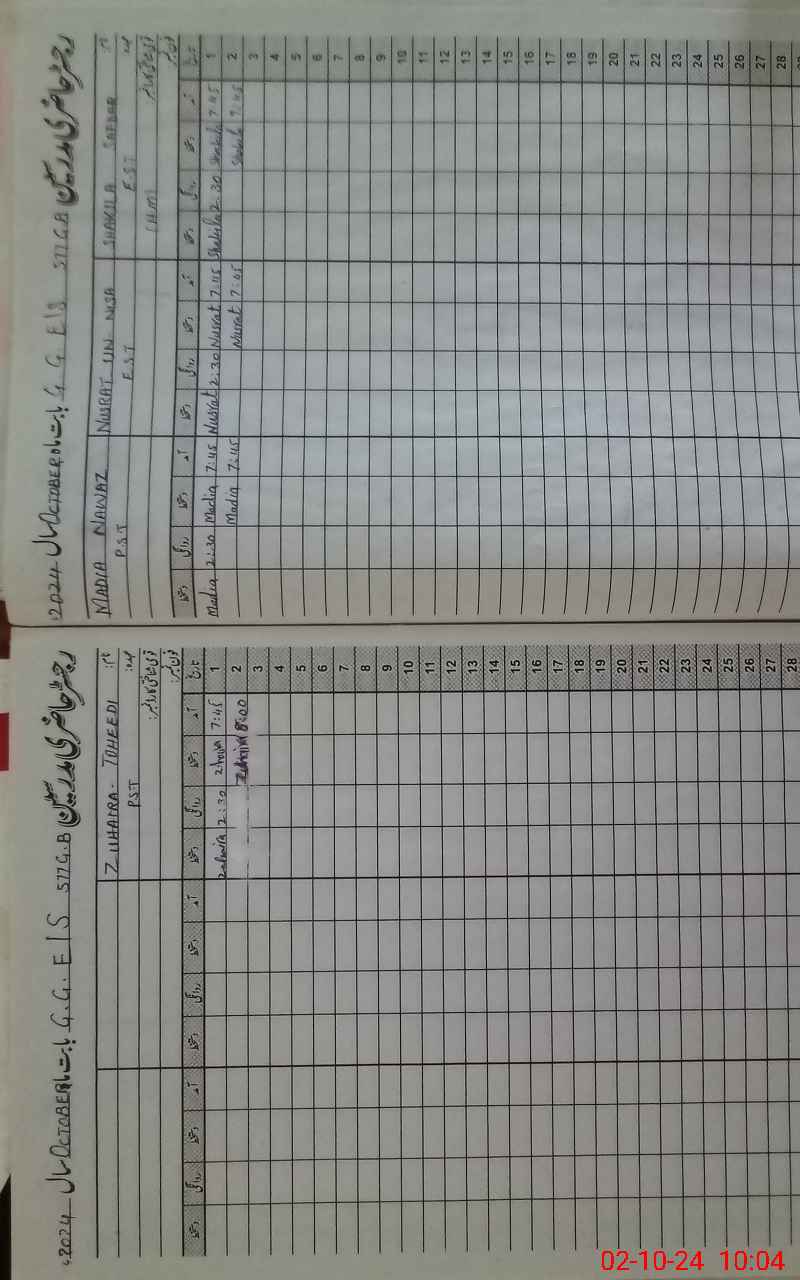 رجسٹر حاضری مدرسین G G E/S 577 G.B بابت ماہ OCTOBER سال 2024
نام: SHAKILA SAFDAR NUSRAT UN NISA MADIA NAWAZ
عہدہ: EST EST PST
(HM)
تاریخ آمد دستخط روانگی دستخط آمد دستخط روانگی دستخط آمد دستخط روانگی دستخط
1 7:45 Shakila 2:30 Shakila 7:45 Nusrat 2:30 Nusrat 7:45 Madia 2:30 Madia
2 7:45 Shakila 7:05 Nusrat 7:45 Madia
3
4
5
6
7
8
9
10
11
12
13
14
15
16
17
18
19
20
21
22
23
24
25
26
27
28
رجسٹر حاضری مدرسین G.G. E/S 577 G.B بابت ماہ OCTOBER سال 2024
نام: ZUHADRA- TOHEEDI
عہدہ: PST
تاریخ آمد دستخط روانگی دستخط آمد دستخط روانگی دستخط آمد دستخط روانگی دستخط
1 7:45 2:30
2 8:00
3
4
5
6
7
8
9
10
11
12
13
14
15
16
17
18
19
20
21
22
23
24
25
26
27
28
02-10-24 10:04